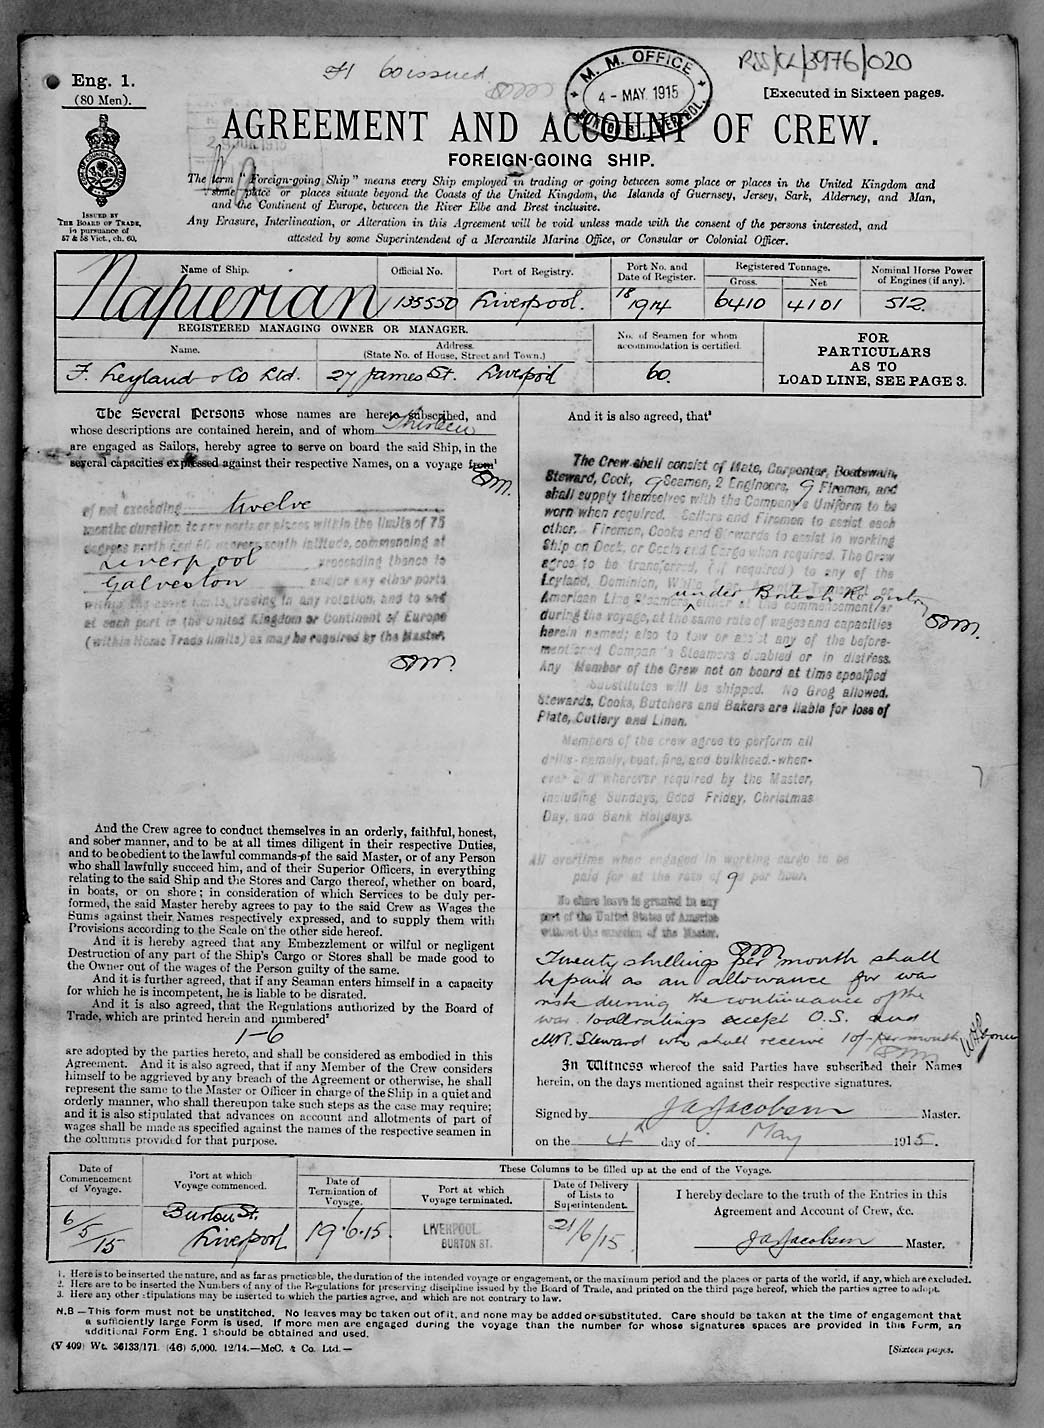 Eng. 1.
(80 Men).
60 issued
M. M. OFFICE
4 - MAY. 1915
RSS/CL/3976/020
[Executed in Sixteen pages.
AGREEMENT AND ACCOUNT OF CREW.
FOREIGN-GOING SHIP.
ISSUED BY
THE BOARD OF TRADE,
in pursuance of
57 & 58 Vict., ch. 60.
The term "Foreign-going Ship" means every Ship employed in trading or going between some place or places in the United Kingdom and
some place or places situate beyond the Coasts of the United Kingdom, the Islands of Guernsey, Jersey, Sark, Alderney, and Man,
and the Continent of Europe, between the River Elbe and Brest inclusive.
Any Erasure, Interlineation, or Alteration in this Agreement will be void unless made with the consent of the persons interested, and
attested by some Superintendent of a Mercantile Marine Office, or Consular or Colonial Officer.
Name of Ship.
Official No.
Port of Registry.
Port No. and
Date of Register.
Registered Tonnage.
Gross.
Net
Nominal Horse Power
of Engines (if any).
Napierian
135550
Liverpool.
18/1914
6410
4101
512.
REGISTERED MANAGING OWNER OR MANAGER.
Name.
Address.
(State No. of House, Street and Town.)
No. of Seamen for whom
accommodation is certified.
FOR
PARTICULARS
AS TO
LOAD LINE, SEE PAGE 3.
F. Leyland & Co Ltd.
27 James St. Liverpool
60.
The Several Persons whose names are hereto subscribed, and
whose descriptions are contained herein, and of whom Thirteen
are engaged as Sailors, hereby agree to serve on board the said Ship, in the
several capacities expressed against their respective Names, on a voyage from¹
of not exceeding twelve
months duration to any ports or places within the limits of 75
degrees north and 60 degrees south latitude, commencing at
Liverpool proceeding thence to
Galveston and/or any other ports
within the above limits, trading in any rotation, and to end
at such port in the United Kingdom or Continent of Europe
(within Home Trade limits) as may be required by the Master.
And the Crew agree to conduct themselves in an orderly, faithful, honest,
and sober manner, and to be at all times diligent in their respective Duties,
and to be obedient to the lawful commands of the said Master, or of any Person
who shall lawfully succeed him, and of their Superior Officers, in everything
relating to the said Ship and the Stores and Cargo thereof, whether on board,
in boats, or on shore; in consideration of which Services to be duly per-
formed, the said Master hereby agrees to pay to the said Crew as Wages the
Sums against their Names respectively expressed, and to supply them with
Provisions according to the Scale on the other side hereof.
And it is hereby agreed that any Embezzlement or wilful or negligent
Destruction of any part of the Ship's Cargo or Stores shall be made good to
the Owner out of the wages of the Person guilty of the same.
And it is further agreed, that if any Seaman enters himself in a capacity
for which he is incompetent, he is liable to be disrated.
And it is also agreed, that the Regulations authorized by the Board of
Trade, which are printed herein and numbered²
1-6
are adopted by the parties hereto, and shall be considered as embodied in this
Agreement. And it is also agreed, that if any Member of the Crew considers
himself to be aggrieved by any breach of the Agreement or otherwise, he shall
represent the same to the Master or Officer in charge of the Ship in a quiet and
orderly manner, who shall thereupon take such steps as the case may require;
and it is also stipulated that advances on account and allotments of part of
wages shall be made as specified against the names of the respective seamen in
the columns provided for that purpose.
And it is also agreed, that³
The Crew shall consist of Mate, Carpenter, Boatswain,
Steward, Cook, 9 Seamen, 2 Engineers, 9 Firemen, and
shall supply themselves with the Company's Uniform to be
worn when required. Sailors and Firemen to assist each
other. Firemen, Cooks and Stewards to assist in working
Ship on Deck, or Coals and Cargo when required. The Crew
agree to be transferred, (if required) to any of the
Leyland, Dominion, White Star,
American Line Steamers, under British Registry either at the commencement or
during the voyage, at the same rate of wages and capacities
herein named; also to tow or assist any of the before-
mentioned Company's Steamers disabled or in distress.
Any Member of the Crew not on board at time specified
Substitutes will be shipped. No Grog allowed.
Stewards, Cooks, Butchers and Bakers are liable for loss of
Plate, Cutlery and Linen.
Members of the crew agree to perform all
drills-namely, boat, fire, and bulkhead-when-
ever and wherever required by the Master,
including Sundays, Good Friday, Christmas
Day, and Bank Holidays.
All overtime when engaged in working cargo to be
paid for at the rate of 9 per hour.
No shore leave is granted in any
part of the United States of America
without the sanction of the Master.
Twenty shillings per month shall
be paid as an allowance for war
risk during the continuance of the
war. To all ratings except O.S. and
M.R. Steward who shall receive 10/- per month
In Witness whereof the said Parties have subscribed their Names
herein, on the days mentioned against their respective signatures.
Signed by J A Jacobsen Master.
on the 4th day of May 1915.
Date of
Commencement
of Voyage.
Port at which
Voyage commenced.
These Columns to be filled up at the end of the Voyage.
Date of
Termination of
Voyage.
Port at which
Voyage terminated.
Date of Delivery
of Lists to
Superintendent.
I hereby declare to the truth of the Entries in this
Agreement and Account of Crew, &c.
6/5/15
Burton St.
Liverpool
19.6.15
LIVERPOOL
BURTON ST.
21/6/15
J A Jacobsen Master.
1. Here is to be inserted the nature, and as far as practicable, the duration of the intended voyage or engagement, or the maximum period and the places or parts of the world, if any, which are excluded.
2. Here are to be inserted the Numbers of any of the Regulations for preserving discipline issued by the Board of Trade, and printed on the third page hereof, which the parties agree to adopt.
3. Here any other stipulations may be inserted to which the parties agree, and which are not contrary to law.
N.B.—This form must not be unstitched. No leaves may be taken out of it, and none may be added or substituted. Care should be taken at the time of engagement that
a sufficiently large Form is used. If more men are engaged during the voyage than the number for whose signatures spaces are provided in this Form, an
additional Form Eng. 1 should be obtained and used.
(V 409) Wt. 36133/171. (46) 5,000. 12/14.—McC. & Co. Ltd.—
[Sixteen pages.